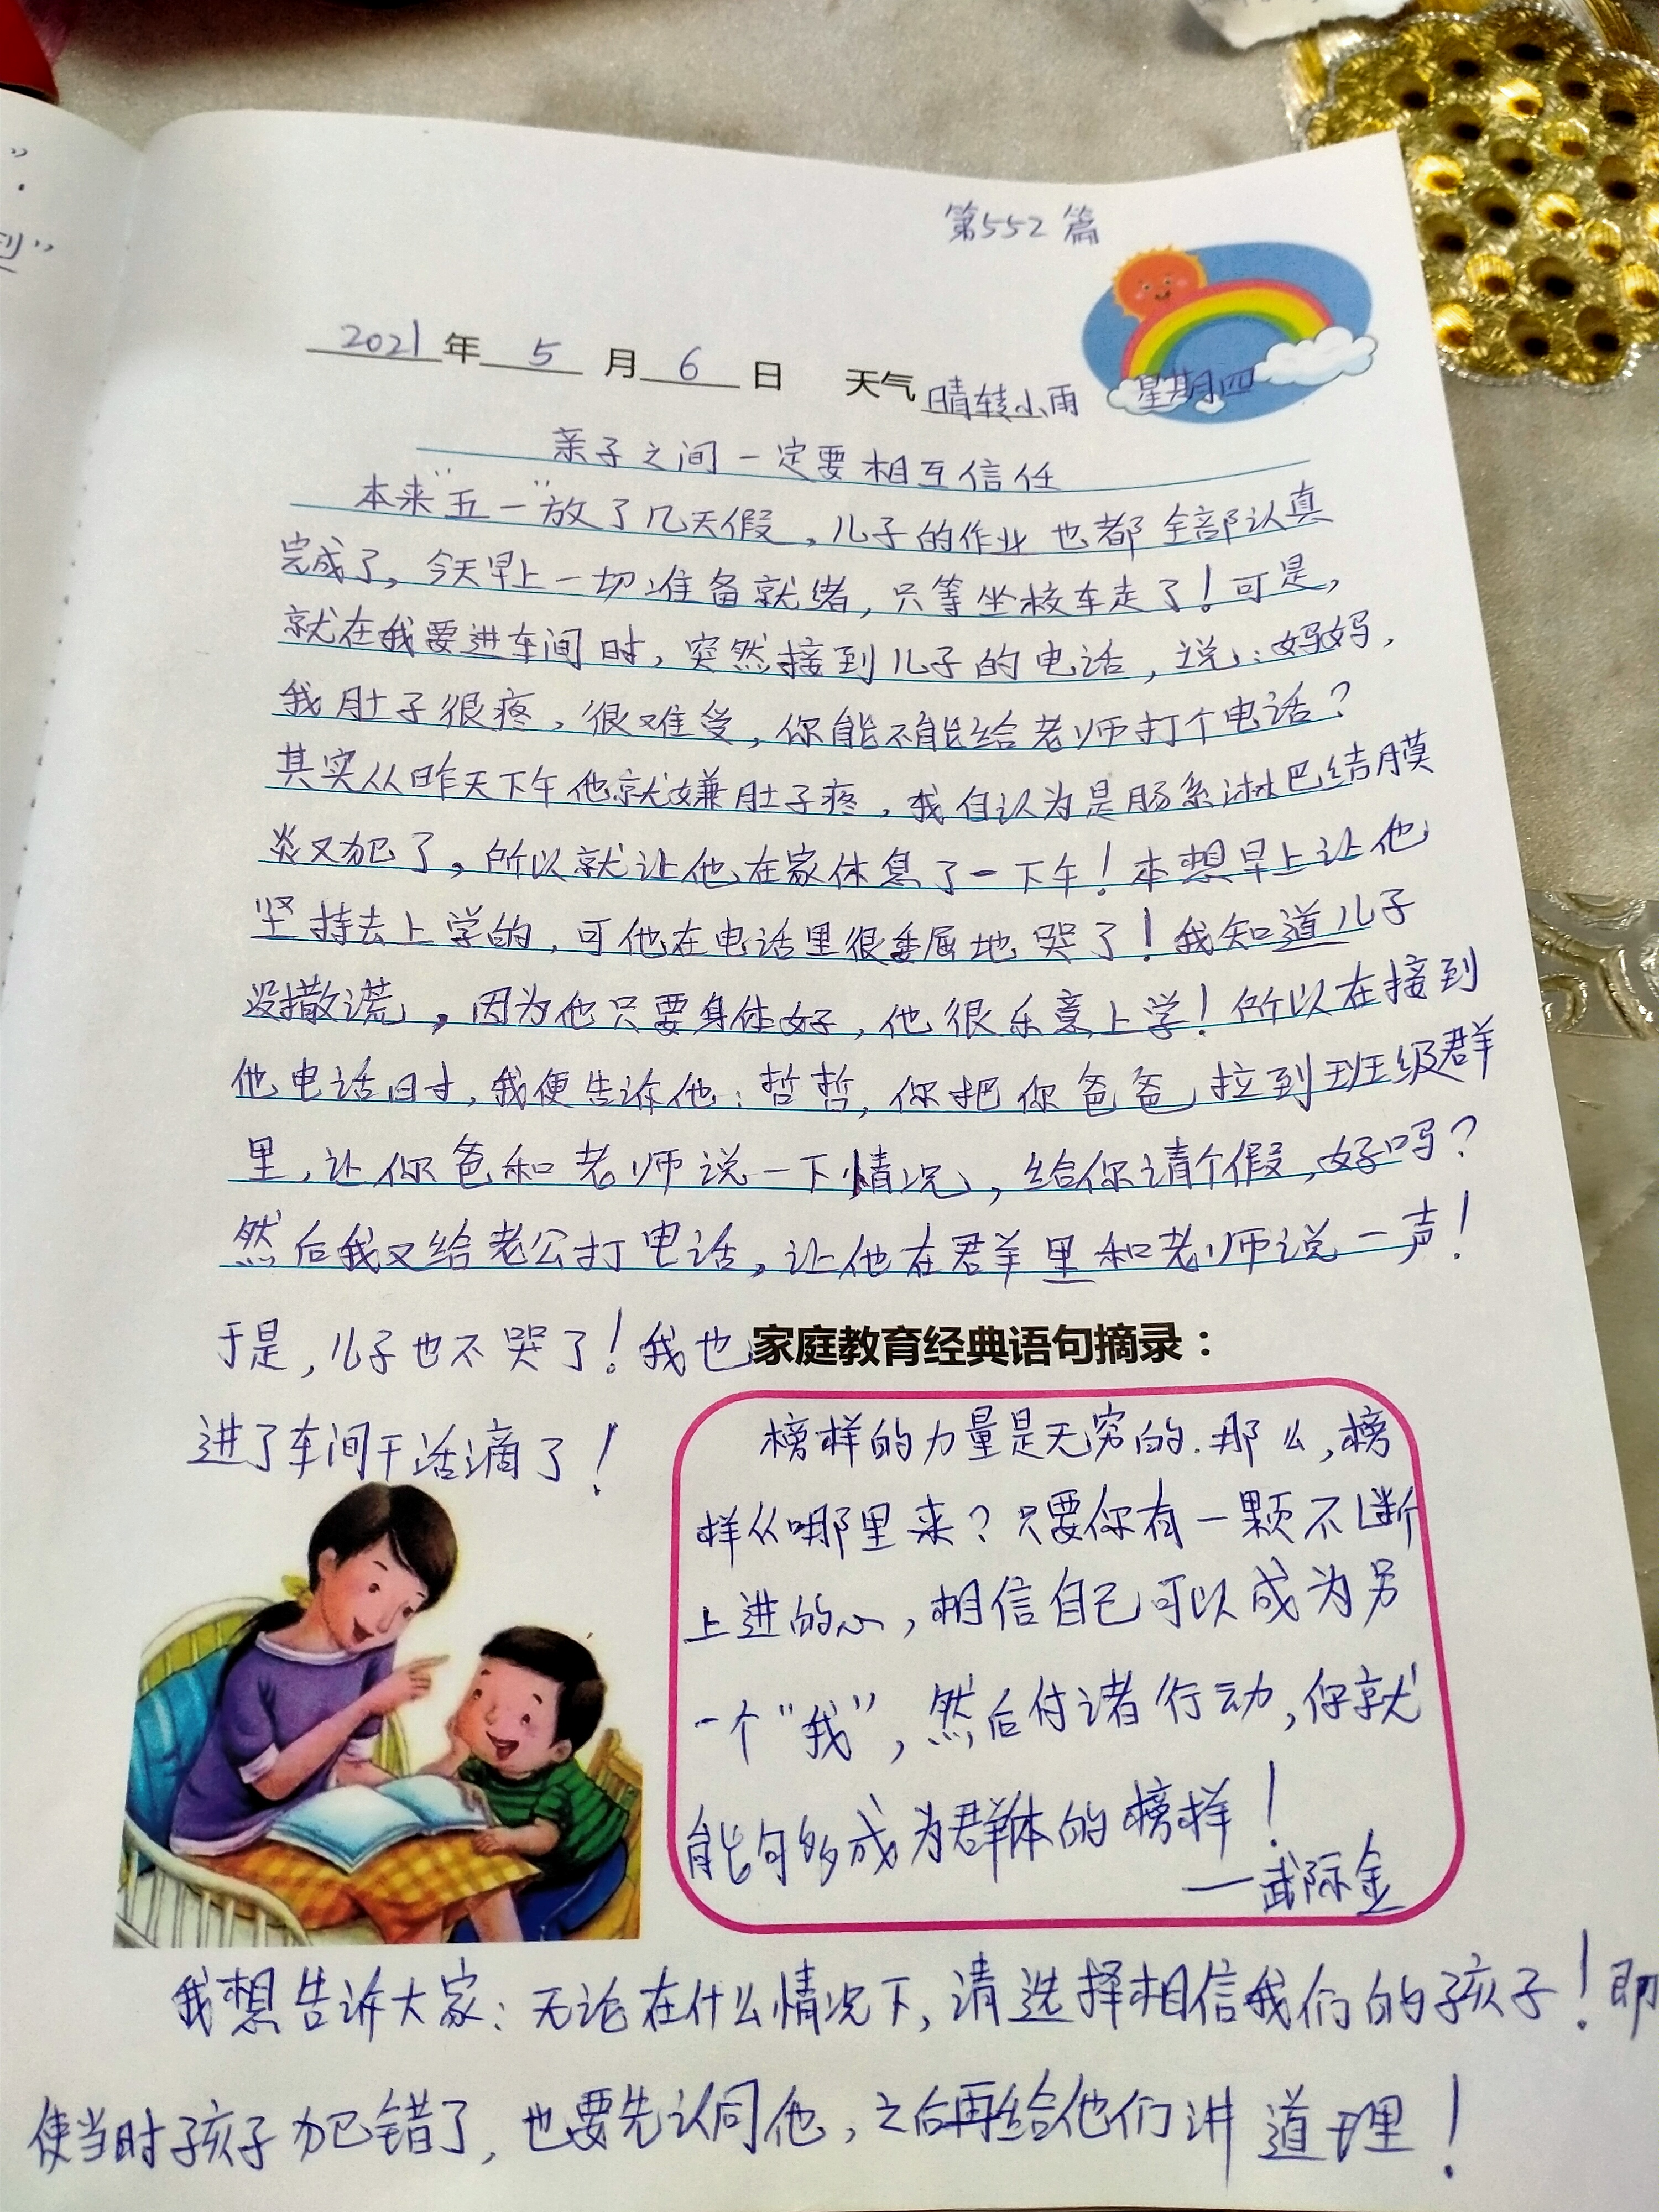 ”.
第552篇
2021年5月6日 天气晴转小雨 星期四
亲子之间一定要相互信任
本来“五一”放了几天假,儿子的作业也都全部认真
完成了,今天早上一切准备就绪,只等坐校车走了!可是,
就在我要进车间时,突然接到儿子的电话,说:妈妈,
我肚子很疼,很难受,你能不能给老师打个电话?
其实从昨天下午他就嫌肚子疼,我自认为是肠系淋巴结膜
炎又犯了,所以就让他在家休息了一下午!本想早上让他
坚持去上学的,可他在电话里很委屈地哭了!我知道儿子
没撒谎,因为他只要身体好,他很乐意上学!所以在接到
他电话时,我便告诉他:哲哲,你把你爸爸拉到班级群
里,让你爸和老师说一下情况,给你请个假,好吗?
然后我又给老公打电话,让他在群里和老师说一声!
于是,儿子也不哭了!我也
进了车间干活滴了!
家庭教育经典语句摘录:
榜样的力量是无穷的.那么,榜
样从哪里来?只要你有一颗不断
上进的心,相信自己可以成为另
一个“我”,然后付诸行动,你就
能够成为群体的榜样!
——武际金
我想告诉大家:无论在什么情况下,请选择相信我们的孩子!即
使当时孩子犯错了,也要先认同他,之后再给他们讲道理!